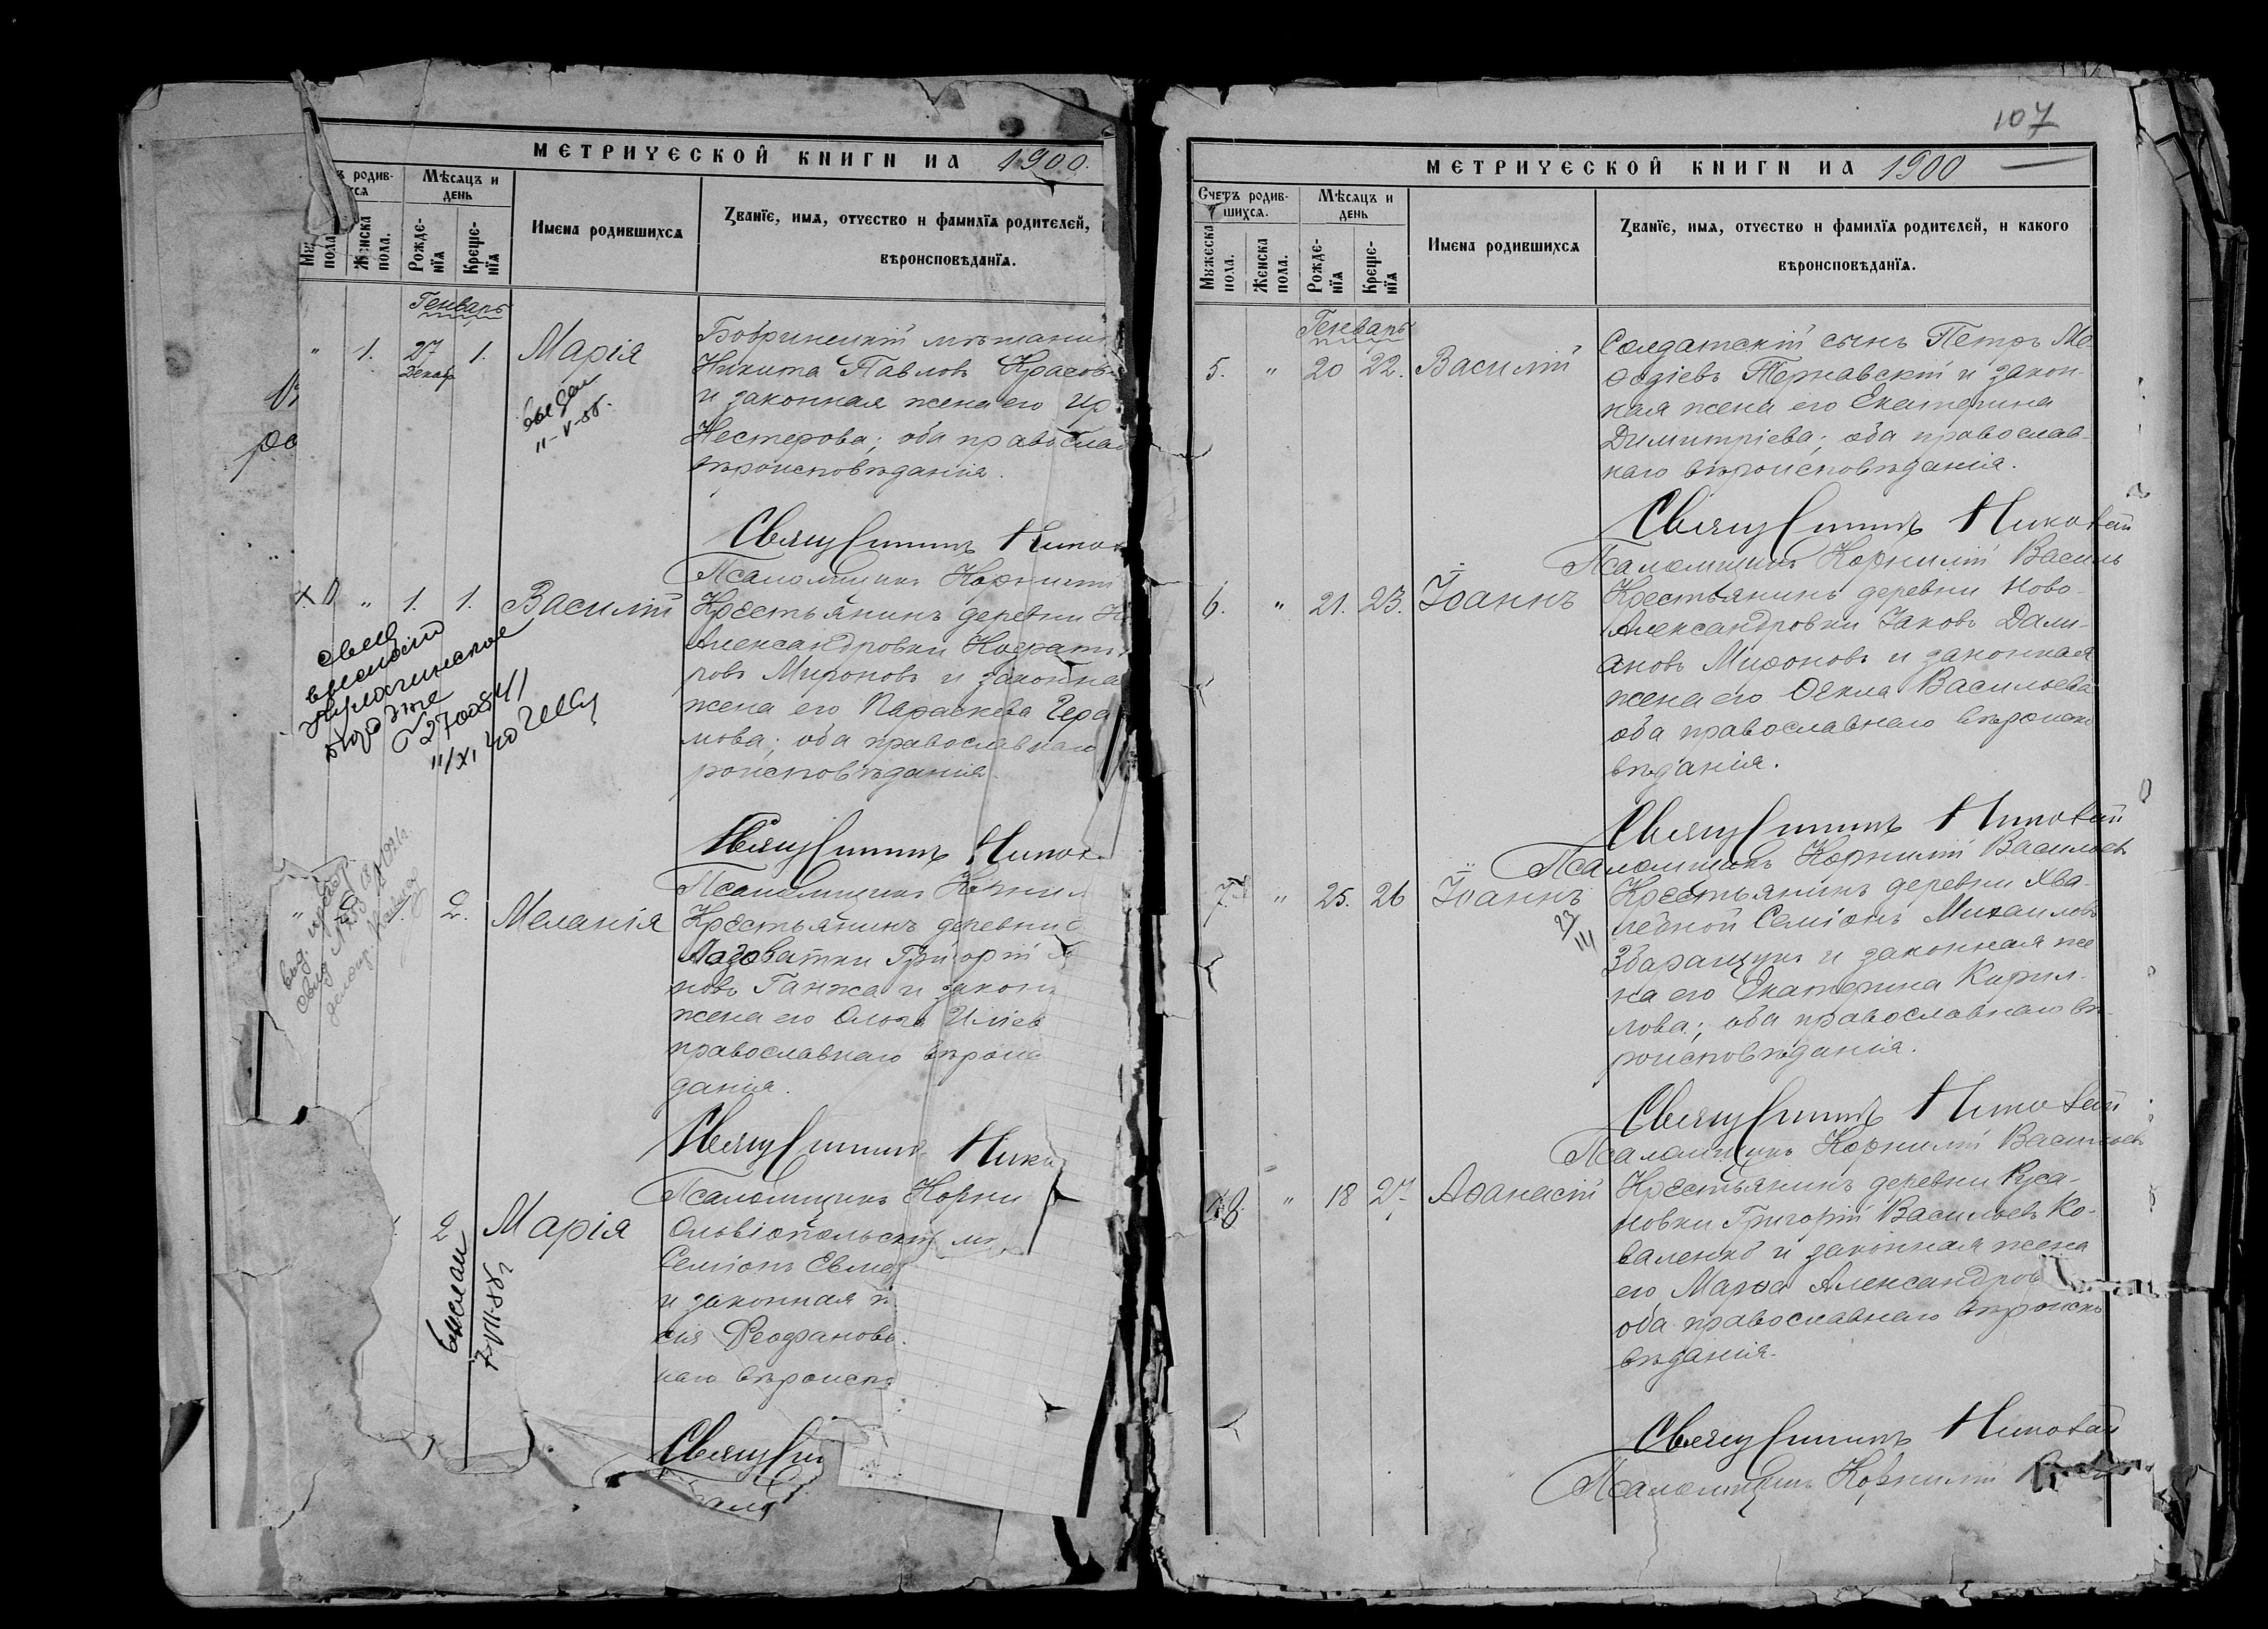 МЕТРИЧЕСКОЙ КНИГИ НА 1900.
родив-
Мѣсяцъ и день
Женска пола.
Рожде-нїя
Креще-нїя
Имена родившихся
Званїе, имя, отчество и фамилїя родителей,
вѣроисповѣданїя.
Генварь
" 1. 27 Декаб. 1. Марія
Бобринецкій мѣщанин
Никита Павловъ Красов
и законная жена его Ир
Нестерова; оба православ
вѣроисповѣданія.
выдан
11-V-55.
Священникъ Никол
Псаломщикъ Корнилій
" 1. 1. Василій
Крестьянинъ деревни Н
Александровки
ровъ Мироновъ и законна
жена его Параскева Гера
мова; оба православнаго
роисповѣданія.
Священникъ Никол
Псаломщикъ Корнил
" 2. Меланія
Крестьянинъ деревни
Лозоватки Григорій
новъ Ганжа и закон
жена его Ольга Иліев
православнаго вѣроис
данія.
Священникъ Нико
Псаломщикъ Корни
2 Марія
Ольвіопольскій мѣ
Семіонъ Евме
и законная ж
сія Феофанова
наго вѣроисп
выслан
7-VII-58г
Священ
107
МЕТРИЧЕСКОЙ КНИГИ НА 1900
Счетъ родив-шихся.
Мѣсяцъ и день
Мужеска пола.
Женска пола.
Рожде-нїя
Креще-нїя
Имена родившихся
Званїе, имя, отчество и фамилїя родителей, и какого
вѣроисповѣданїя.
Генварь
5. " 20 22. Василій
Солдатскій сынъ Петръ Ме
ѳодіевъ Тернавскій и закон-
ная жена его Екатерина
Димитріева; оба православ-
наго вѣроисповѣданія.
Священникъ Николай
Псаломщикъ Корнилій Василь
6. " 21. 23. Іоаннъ
Крестьянинъ деревни Ново-
Александровки Іаковъ Дами-
ановъ Мироновъ и законная
жена его Ѳекла Васильева
оба православнаго вѣроиспо
вѣданія.
Священникъ Николай
Псаломщикъ Корнилій Васильев
7. " 25. 26 Іоаннъ
Крестьянинъ деревни Хва-
лебной Семіонъ Михаиловъ
Збаращукъ и законная же
на его Екатерина Кирил-
лова; оба православнаго вѣ-
роисповѣданія.
Священникъ Николай
Псаломщикъ Корнилій Васильевъ
8. " 18 27. Аѳанасій
Крестьянинъ деревни Руса-
новки Григорій Васильевъ Ко-
валенко и законная жена
его Марѳа Александров
оба православнаго вѣроиспо
вѣданія.
Священникъ Николай
Псаломщикъ Корнилій